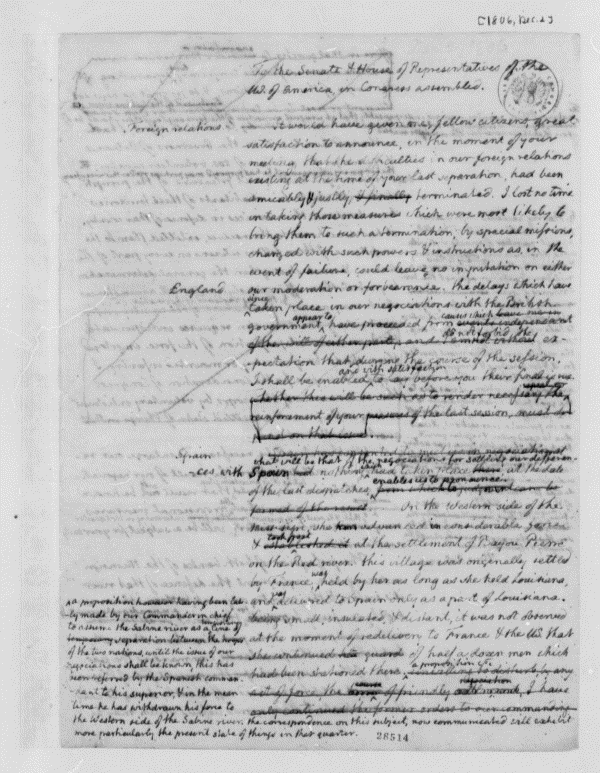 [1806, Dec. 2]
To the Senate & House of Representatives of the
U.S. of America in Congress assembled.
Foreign relations
It would have given me, fellow citizens, great
satisfaction to announce, in the moment of your
meeting, that the difficulties in our foreign relations
existing at the time of your last separation, had been
amicably & justly & finally terminated. I lost no time
in taking those measures which were most likely to
bring them to such a termination, by special missions,
charged with such powers & instructions as, in the
event of failure, could leave no imputation on either
England
our moderation or forbearance. the delays which have
since
taken place in our negociations with the British
appear to
causes which
government, have proceeded from events independant
of the will of either party, and
do not forbid the
I am not without ex-
-pectation that during the course of the session,
I shall be enabled to lay before you their final issue
and with satisfaction
whether this will be such as to render necessary the
reinforcement of your measures of the last session, must de
Spain
what will be that of the negociations for settling our differen-
-ces with Spain nothing had taken place there at the date
enables us to pronounce.
of the last despatches from which to judge
formed of the result. On the Western side of the
Missisipi she advanced in considerable force
took post
& established it at the settlement of Bayou Pierre
on the Red river. this village was originally settled
by France,
was
held by her as long as she held Louisiana,
and
was
delivered to Spain only as a part of Louisiana.
being small, insulated, & distant, it was not observed
at the moment of redelivery to France & the U.S. that
she continued a guard of half a dozen men which
had been stationed there.
a proposition however having been late-
-ly made by our Commander in chief
to assume the Sabine river as a
temporary
line of
separation between the troops
of the two nations, until the issue of our
negociations shall be known, this has
been referred by the Spanish comman-
-dant to his superior, & in the mean
time he has withdrawn his force to
the Western side of the Sabine river. the correspondence on this subject, now communicated will exhibit
more particularly the present state of things in that quarter.
any
act of force the course of friendly
negociation
I have
only continued the former orders to our commanding
28514